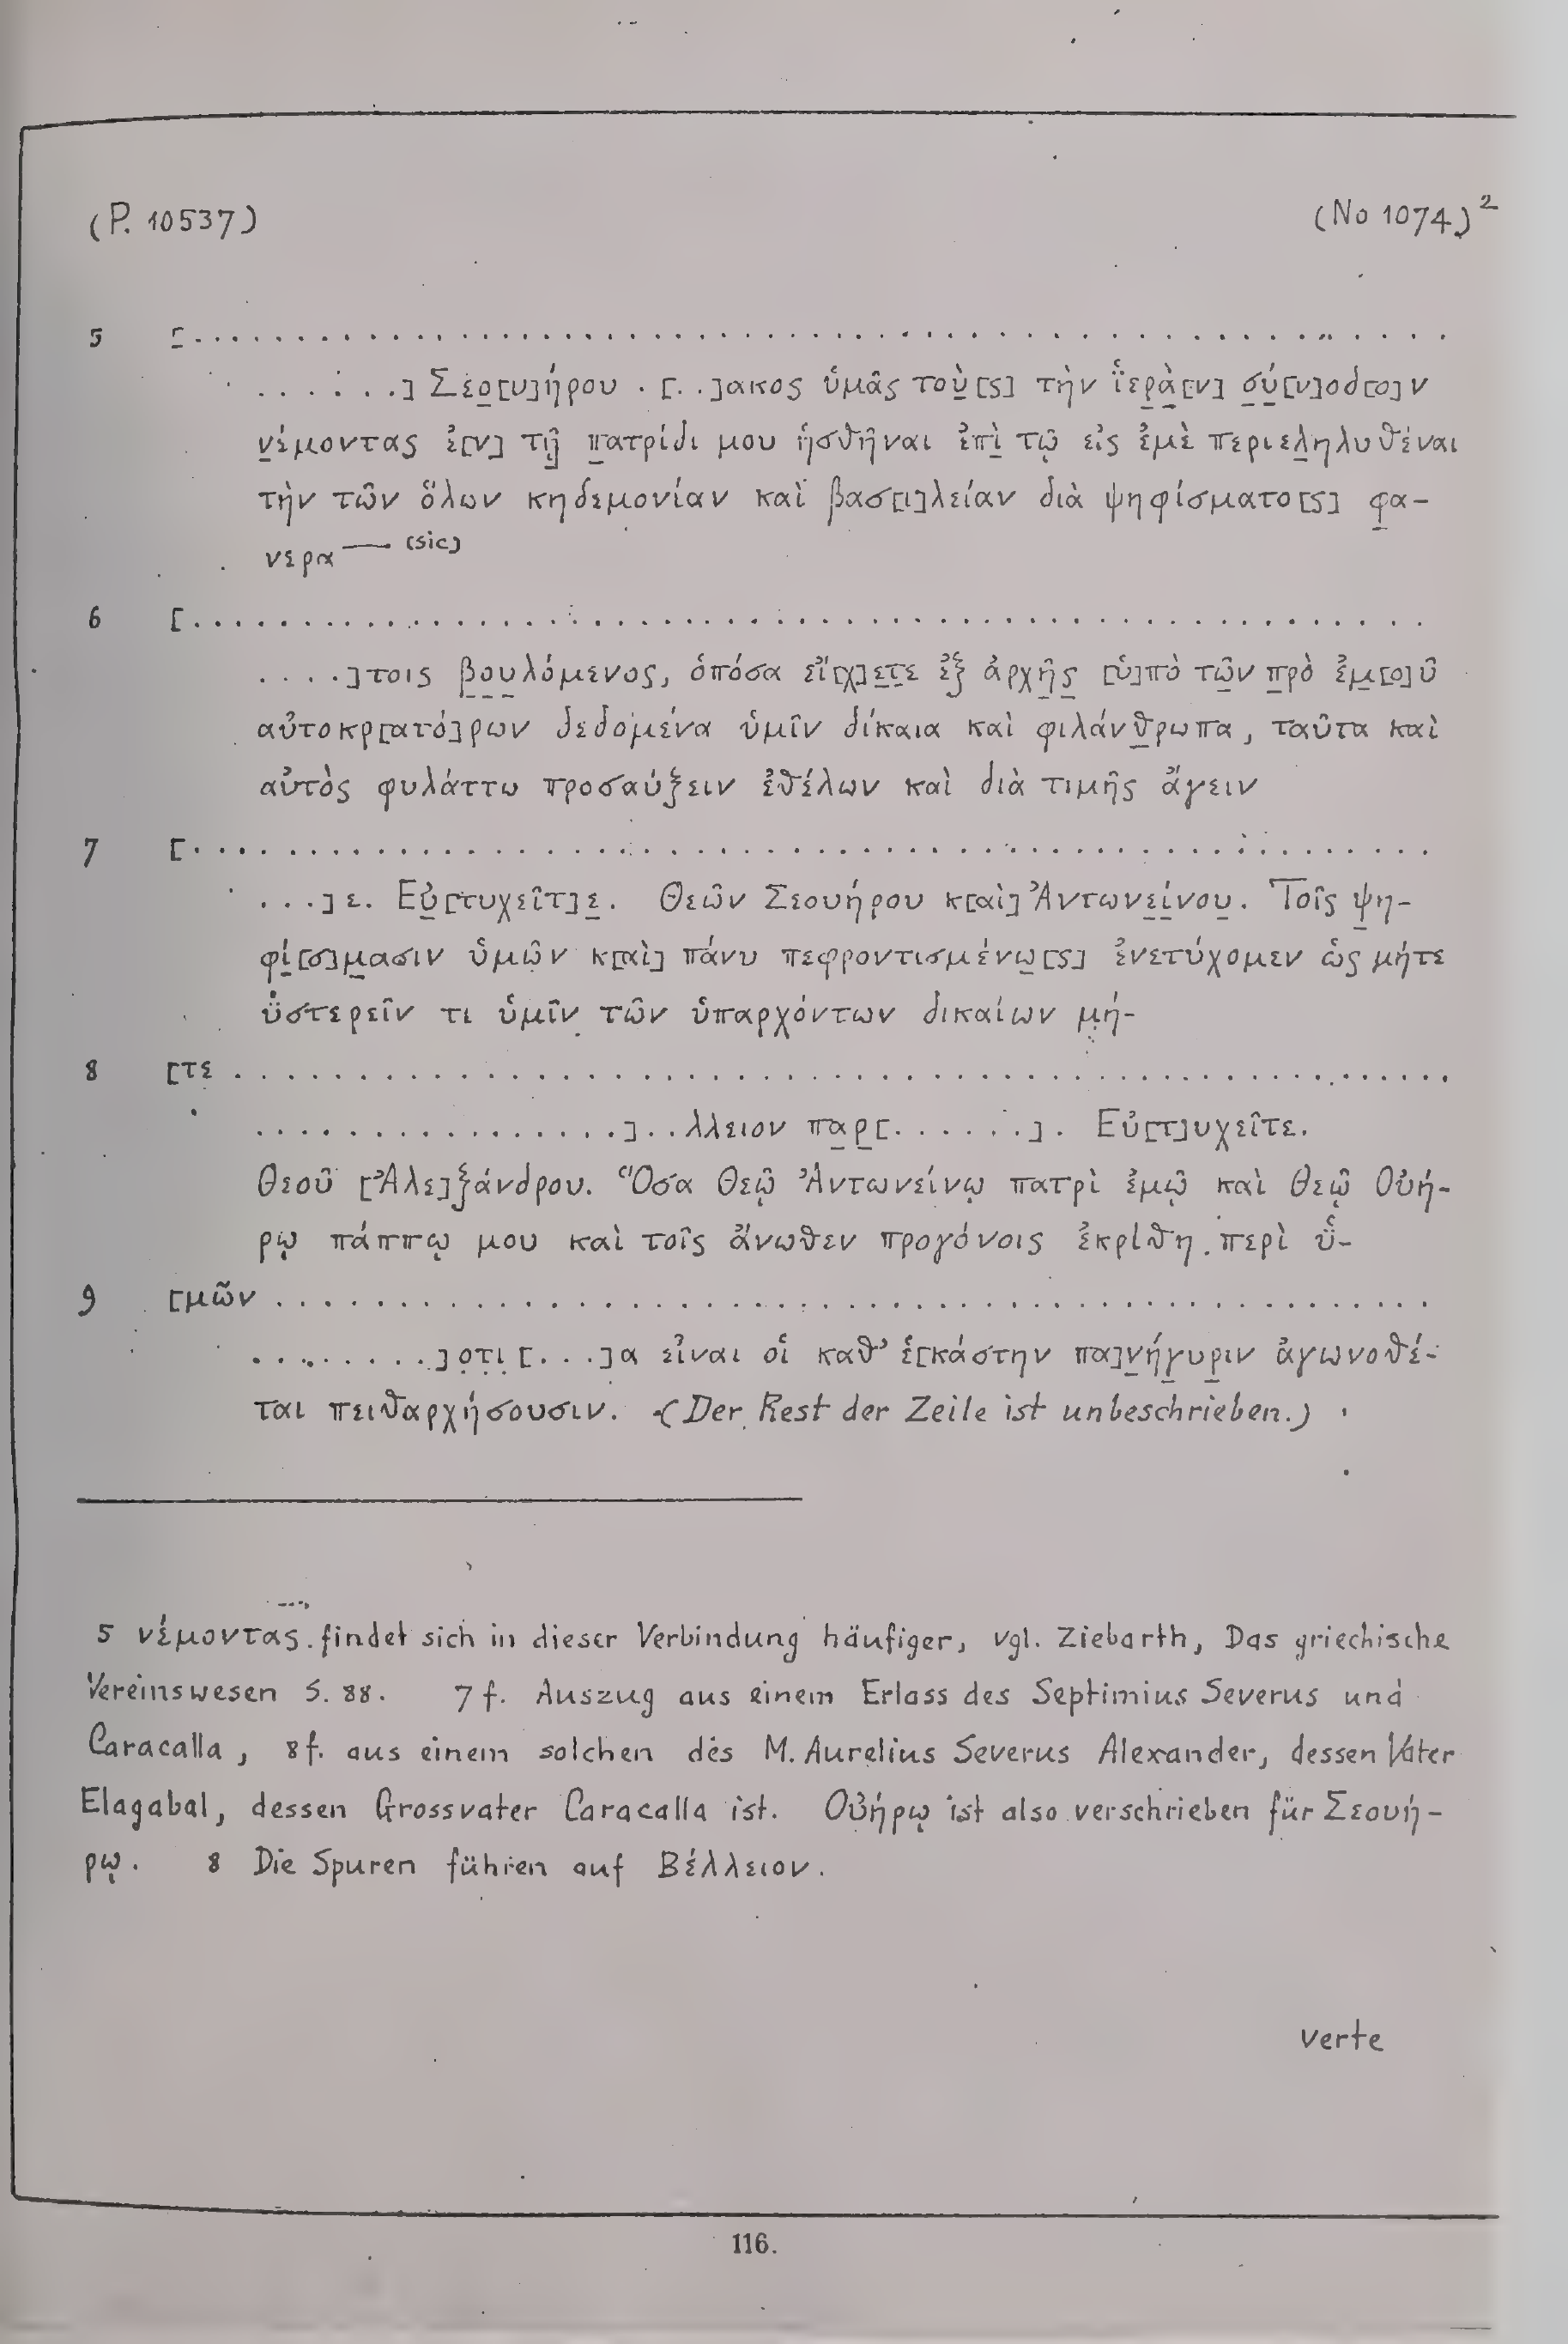 (P. 10537) (No 1074.)²
5 [. . . . . . . . . . . . . . . . . . . . . . . . . . . . . . . . . . . . . . . .
. . . . . . .] Σεο̲[υ]ήρου . [. .]ακος ὑμᾶς τοὺ̲[ς] τὴν ϊ̔ε̲ρ̲ὰ̲[ν] σ̲ύ̲[ν]οδ[ο]ν
ν̲έμοντας ἐ[ν] τῇ̲ π̲ατρίδι μου ἡσθῆναι ἐπὶ̲ τῷ εἰς ἐμὲ περιελ̲ηλυθέναι
τὴν τῶν ὅλων κηδεμονίαν καὶ βασ[ι]λείαν διὰ ψηφίσματο[ς] φ̲α-
νερα — (sic)
6 [. . . . . . . . . . . . . . . . . . . . . . . . . . . . . . . . . . . . . . . .
. . . .]τοις β̲ο̲υ̲λόμενος, ὁπόσα εἴ[χ]ε̲τ̲ε ἐξ ἀρχῆ̲ς̲ [ὑ]πὸ τῶ̲ν π̲ρὸ ἐμ̲[ο]ῦ
αὐτοκρ[ατό]ρων δεδομένα ὑμῖν δίκαια καὶ φιλάνθ̲ρωπα, ταῦτα καὶ
αὐτὸς φυλάττω προσαύξειν ἐθέλων καὶ διὰ τιμῆς ἄγειν
7 [. . . . . . . . . . . . . . . . . . . . . . . . . . . . . . . . . . . . . . . .
. . .]ε. Εὐ̲[τυχεῖτ]ε̲. Θεῶν Σεουήρου κ[αὶ] Ἀντωνε̲ί̲νου̲. Τοῖς ψ̲η-
φί̲[σ]μ̲ασιν ὑμῶν κ[αὶ] πάνυ πεφροντισμένω̲[ς] ἐνετύχομεν ὡς μήτε
ϋ̔στερεῖν τι ὑμῖν τῶν ὑπαρχόντων δικαίων μή-
8 [τε . . . . . . . . . . . . . . . . . . . . . . . . . . . . . . . . . . . . . . .
. . . . . . . . . . . . . . . .]. .λλειον πα̲ρ̲[. . . . . .]. Εὐ[τ]υχεῖτε.
Θεοῦ [Ἀλε]ξάνδρου. Ὅσα Θεῷ Ἀντωνείνῳ πατρὶ ἐμῷ καὶ θεῷ Οὐή-
ρῳ πάππῳ μου καὶ τοῖς ἄνωθεν προγόνοις ἐκρίθη περὶ ϋ̔-
9 [μῶν . . . . . . . . . . . . . . . . . . . . . . . . . . . . . . . . . . . . . .
. . . . . . . . .]ο̣τ̣ι̣ [. . .]α εἶναι οἱ καθ’ ἑ[κάστην πα]ν̲ήγ̲υρ̲ιν ἀγωνοθέ-
ται πειθαρχήσουσιν. (Der Rest der Zeile ist unbeschrieben.)
5 νέμοντας findet sich in dieser Verbindung häufiger, vgl. Ziebarth, Das griechische
Vereinswesen S. 88. 7 f. Auszug aus einem Erlass des Septimius Severus und
Caracalla, 8 f. aus einem solchen des M. Aurelius Severus Alexander, dessen Vater
Elagabal, dessen Grossvater Caracalla ist. Οὐήρῳ ist also verschrieben für Σεουή-
ρῳ. 8 Die Spuren führen auf Βέλλειον.
verte
116.